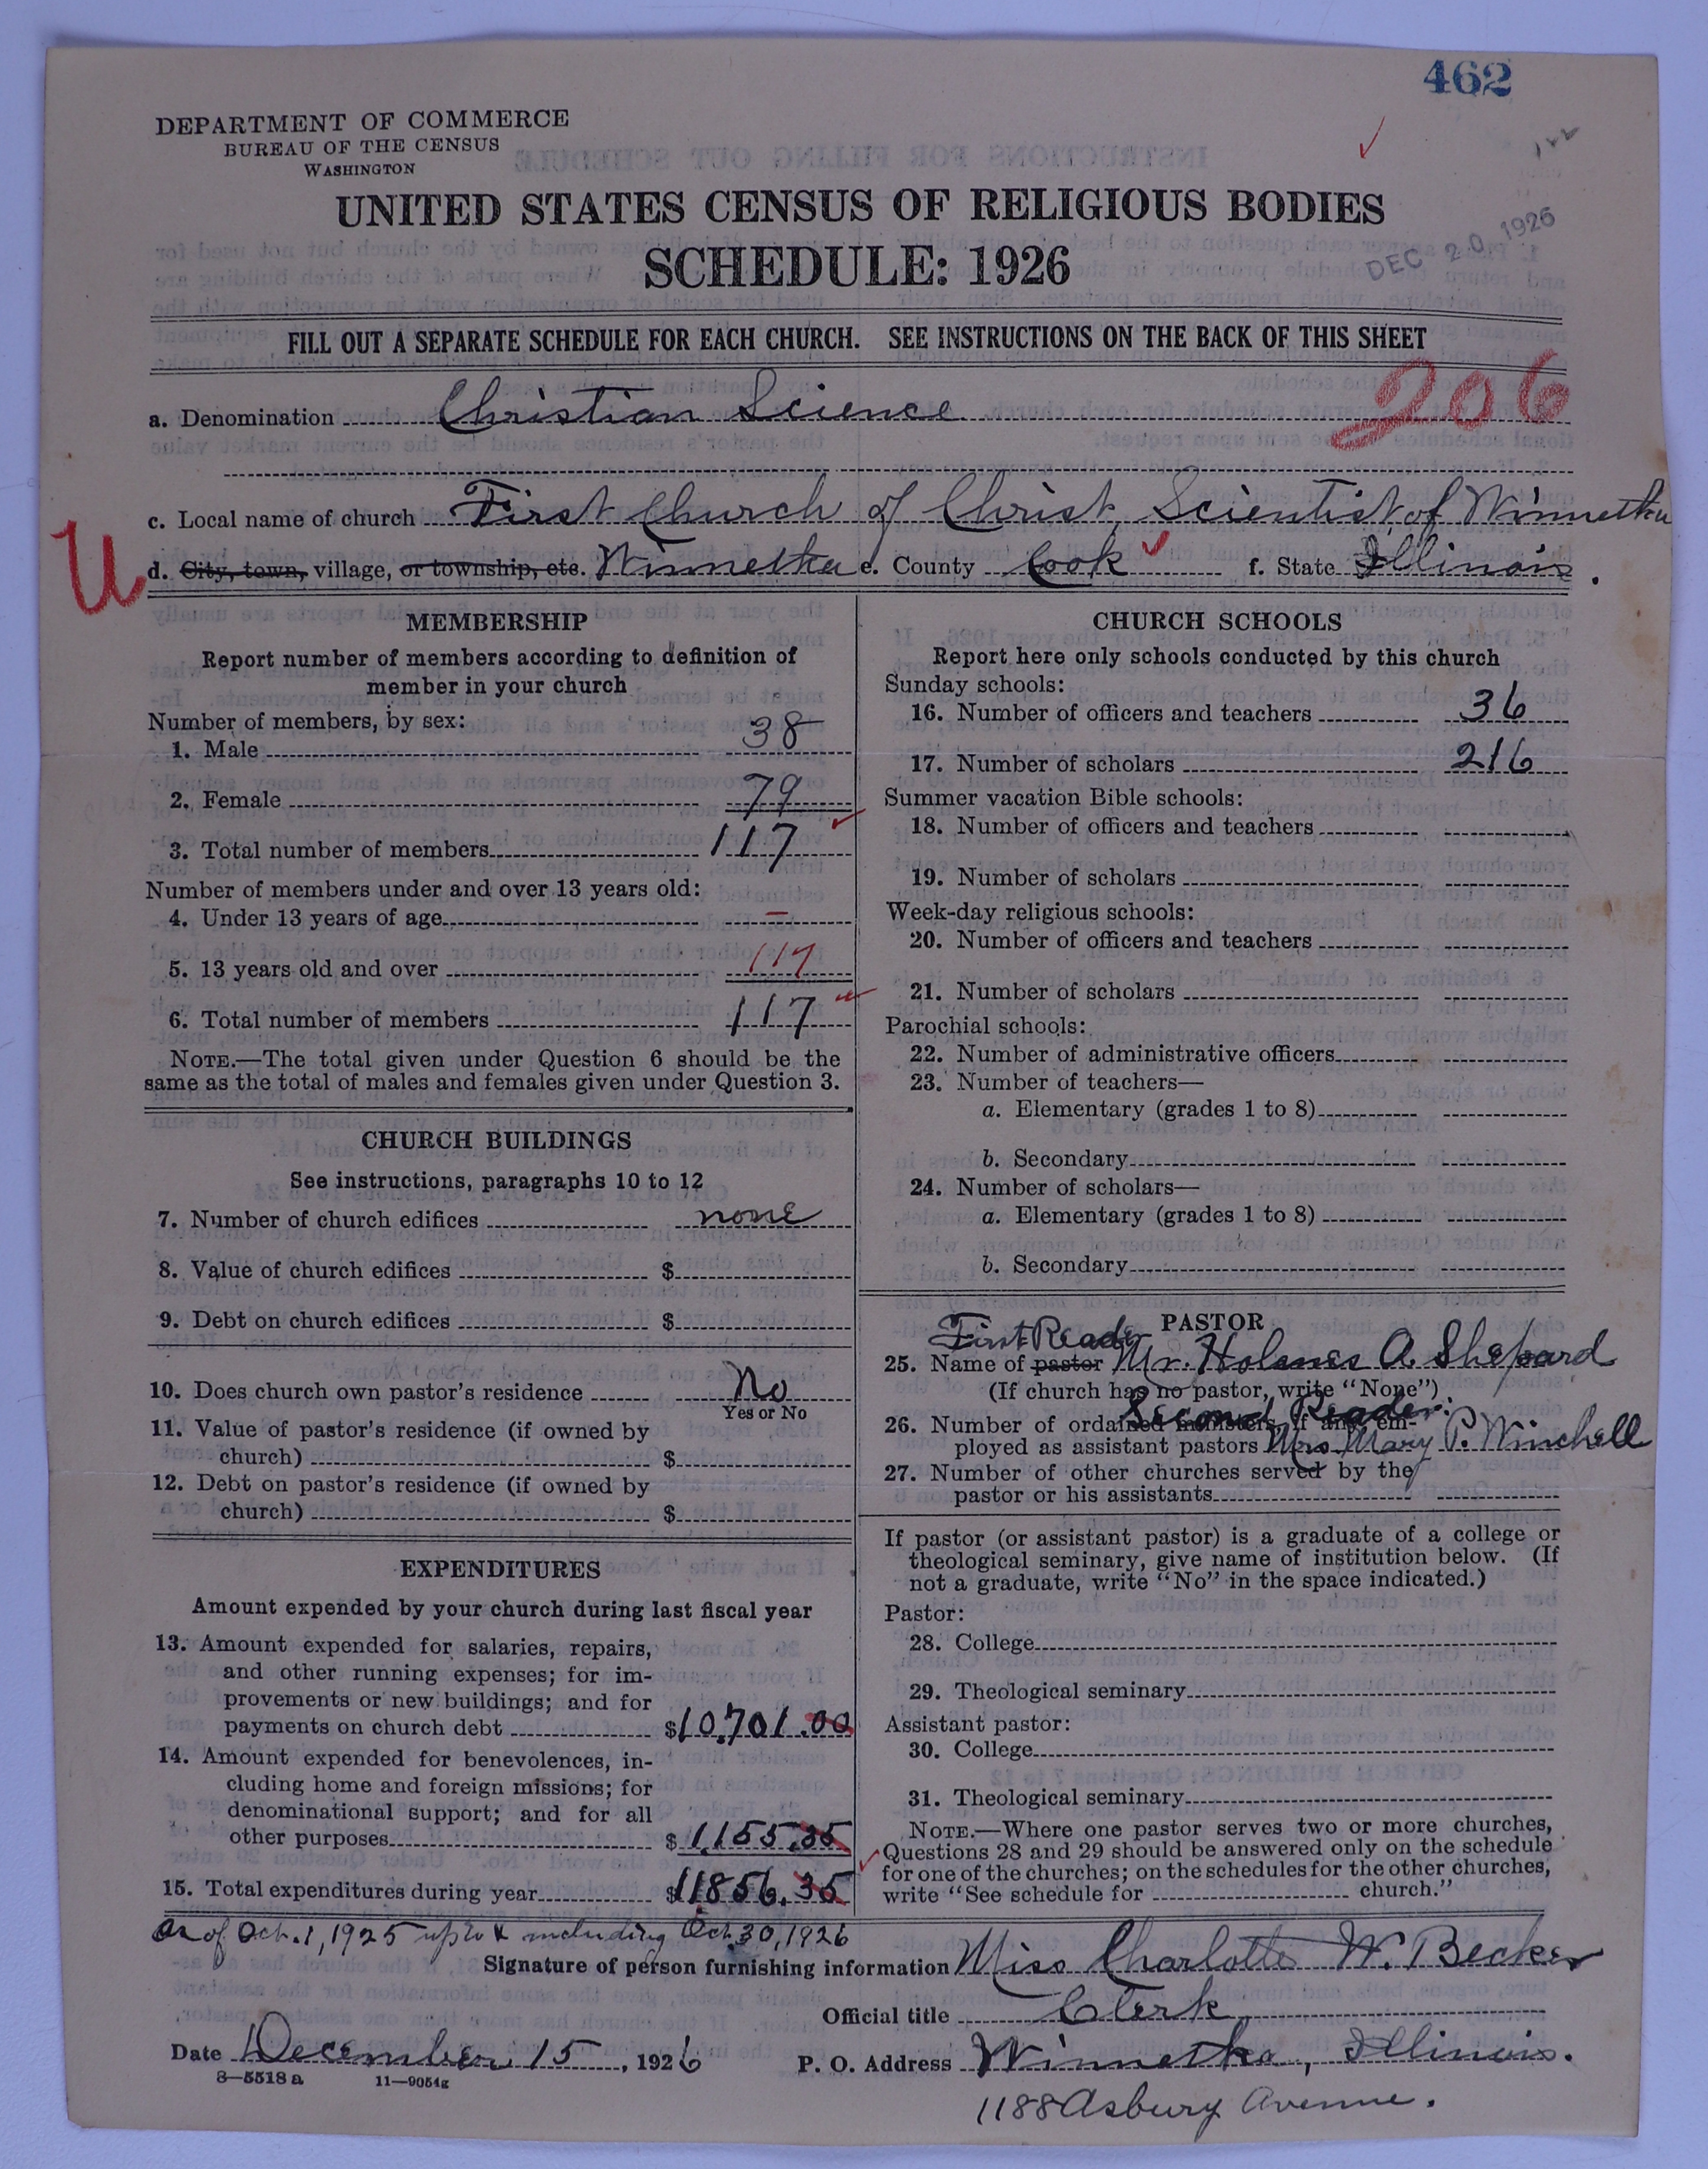 462
DEPARTMENT OF COMMERCE
BUREAU OF THE CENSUS
WASHINGTON
UNITED STATES CENSUS OF RELIGIOUS BODIES
SCHEDULE: 1926
DEC 20 1926
FILL OUT A SEPARATE SCHEDULE FOR EACH CHURCH. SEE INSTRUCTIONS ON THE BACK OF THIS SHEET
206
a. Denomination Christian Science
c. Local name of church First Church of Christ, Scientist of Winnetka
U
d. City, town, village, or township, etc. Winnetka e. County Cook f. State Illinois.
MEMBERSHIP
Report number of members according to definition of
member in your church
Number of members, by sex:
1. Male 38
2. Female 79
3. Total number of members 117
Number of members under and over 13 years old:
4. Under 13 years of age –
5. 13 years old and over 117
6. Total number of members 117
NOTE.—The total given under Question 6 should be the
same as the total of males and females given under Question 3.
CHURCH BUILDINGS
See instructions, paragraphs 10 to 12
7. Number of church edifices none
8. Value of church edifices $
9. Debt on church edifices $
10. Does church own pastor's residence No
Yes or No
11. Value of pastor's residence (if owned by
church) $
12. Debt on pastor's residence (if owned by
church) $
EXPENDITURES
Amount expended by your church during last fiscal year
13. Amount expended for salaries, repairs,
and other running expenses; for im-
provements or new buildings; and for
payments on church debt $10,701.00
14. Amount expended for benevolences, in-
cluding home and foreign missions; for
denominational support; and for all
other purposes $1,155.35
15. Total expenditures during year $11,856.35
as of Oct. 1, 1925 up to & including Oct. 30, 1926
CHURCH SCHOOLS
Report here only schools conducted by this church
Sunday schools:
16. Number of officers and teachers 36
17. Number of scholars 216
Summer vacation Bible schools:
18. Number of officers and teachers
19. Number of scholars
Week-day religious schools:
20. Number of officers and teachers
21. Number of scholars
Parochial schools:
22. Number of administrative officers
23. Number of teachers—
a. Elementary (grades 1 to 8)
b. Secondary
24. Number of scholars—
a. Elementary (grades 1 to 8)
b. Secondary
PASTOR
First Reader
25. Name of pastor Mr. Holmes A. Shepard
(If church has no pastor, write "None")
Second Reader.
26. Number of ordained ministers, if any, em-
ployed as assistant pastors Mrs. Mary P. Winchell
27. Number of other churches served by the
pastor or his assistants
If pastor (or assistant pastor) is a graduate of a college or
theological seminary, give name of institution below. (If
not a graduate, write "No" in the space indicated.)
Pastor:
28. College
29. Theological seminary
Assistant pastor:
30. College
31. Theological seminary
NOTE.—Where one pastor serves two or more churches,
Questions 28 and 29 should be answered only on the schedule
for one of the churches; on the schedules for the other churches,
write "See schedule for church."
Signature of person furnishing information Miss Charlotte W. Becker
Official title Clerk
Date December 15, 1926 P. O. Address Winnetka, Illinois.
8—5518 a 11—9054g
1188 Asbury Avenue.